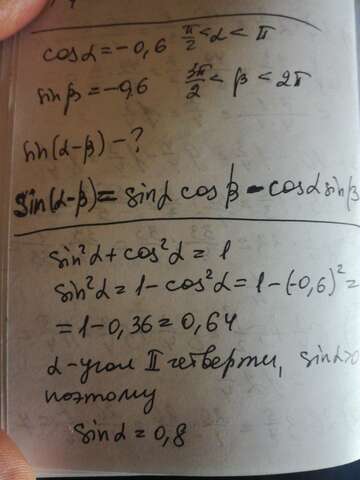 cosα = -0,6 π/2 < α < π
sinβ = -0,6 3π/2 < β < 2π
sin(α-β) - ?
sin(α-β) = sinα cosβ - cosα sinβ
sin²α + cos²α = 1
sin²α = 1 - cos²α = 1 - (-0,6)² =
= 1 - 0,36 = 0,64
α - угол II четверти, sinα>0
поэтому
sinα = 0,8